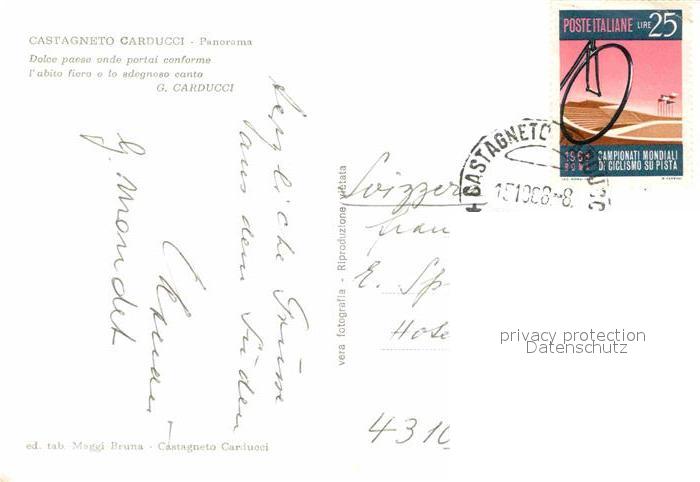 CASTAGNETO CARDUCCI - Panorama
Dolce paese onde portai conforme
l'abito fiero e lo sdegnoso canto
G. CARDUCCI
Herzliche Grüsse
aus dem Süden
G. Mondet
ed. tab. Maggi Bruna - Castagneto Carducci
vera fotografia - Riproduzione vietata
POSTE ITALIANE LIRE 25
1968 CAMPIONATI MONDIALI
ROMA DI CICLISMO SU PISTA
CASTAGNETO
15 10 68 - 8
Svizzer
Frau
E. Sp
Hote
4310
privacy protection
Datenschutz